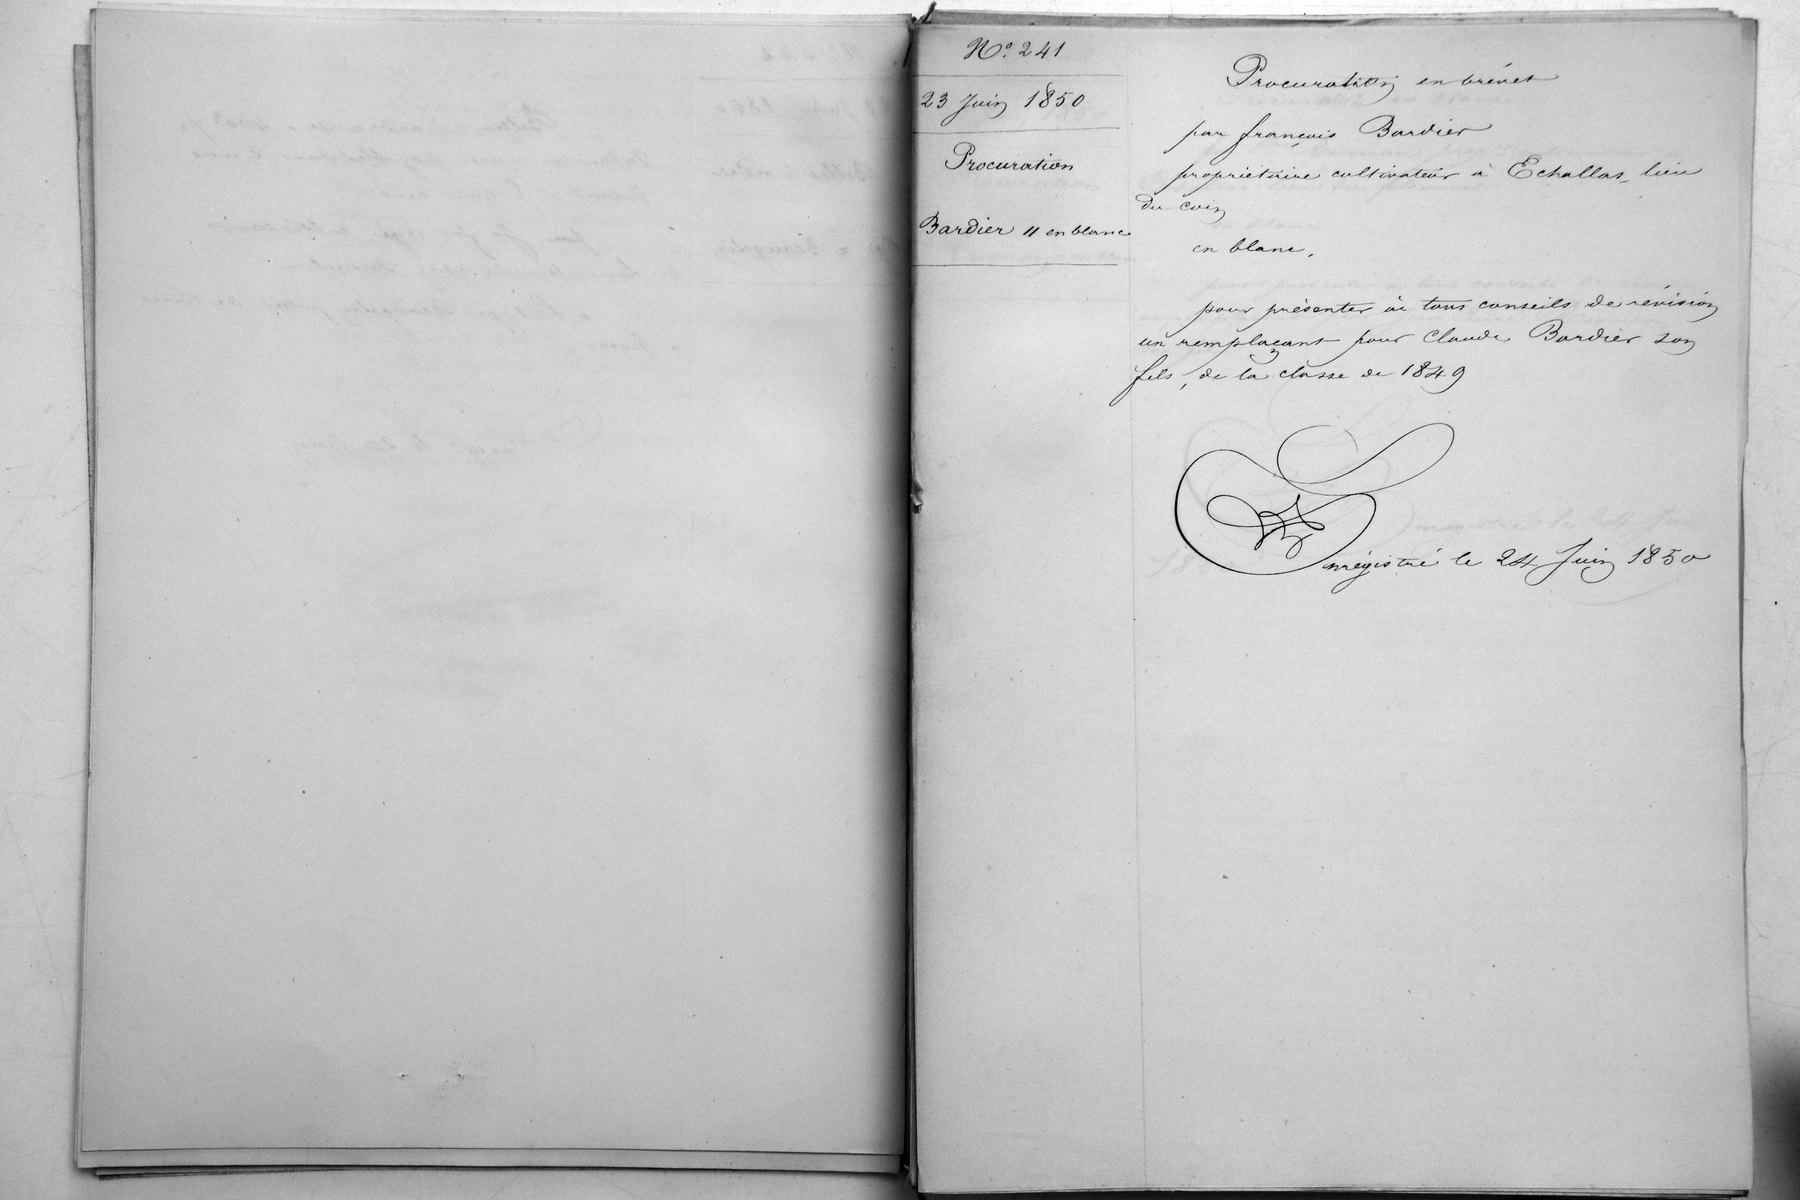 N.o 241
23 Juin 1850
Procuration
Bardier // en blanc
Procuration en brévet
par françois Bardier
propriétaire cultivateur à Echallas, lieu
du coin
en blanc,
pour présenter à tous conseils de révision
un remplaçant pour Claude Bardier son
fils, de la classe de 1849
Enrégistré le 24 Juin 1850